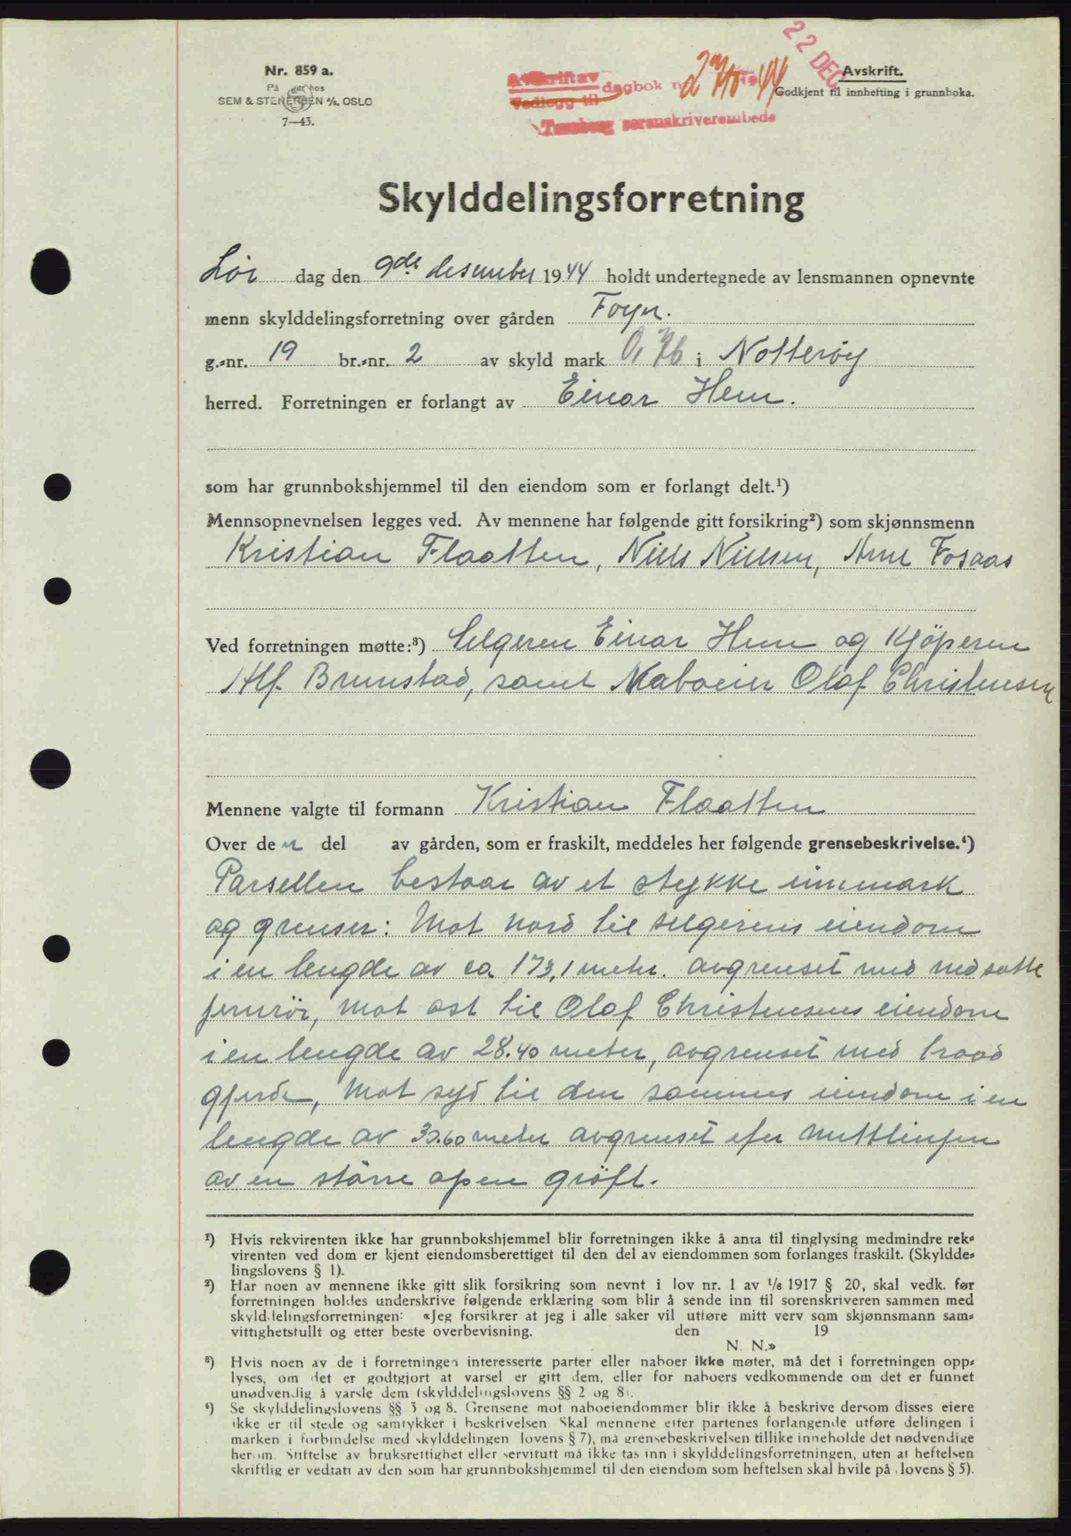 Nr. 859 a.
SEM & STENERSEN A/S, OSLO
7—43.
Avskrift av
Vedlegg til
dagbok nr
Tønsberg sorenskriverembede
22 DEC
Avskrift.
Godkjent til innhefting i grunnboka.
Skylddelingsforretning
Lør dag den 9de desember 1944 holdt undertegnede av lensmannen opnevnte
menn skylddelingsforretning over gården Foyn.
g.-nr. 19 br.-nr. 2 av skyld mark i Nøtterøy
herred. Forretningen er forlangt av Einar Hem.
som har grunnbokshjemmel til den eiendom som er forlangt delt.¹)
Mennsopnevnelsen legges ved. Av mennene har følgende gitt forsikring²) som skjønnsmenn
Kristian Flaatten, Niels Nielsen, Arne Fosaas
Ved forretningen møtte:³) Selgeren Einar Hem og Kjöperen
Alf Brunstad, samt Naboeier Olaf Christensen
Mennene valgte til formann Kristian Flaatten
Over den del av gården, som er fraskilt, meddeles her følgende grensebeskrivelse.⁴)
Parsellen bestaar av et stykke innmark
og grenser: Mot nord til selgerens eiendom
i en lengde av ca. meter. avgrenset med nedsatte
jernrör, mot öst til Olaf Christensens eiendom
i en lengde av 28.40 meter, avgrenset med traad
gjerde, Mot syd til den sammes eiendom i en
lengde av meter avgrenset efter midtlinjen
av en större åpen gröft.
¹) Hvis rekvirenten ikke har grunnbokshjemmel blir forretningen ikke å anta til tinglysing medmindre rek-
virenten ved dom er kjent eiendomsberettiget til den del av eiendommen som forlanges fraskilt. (Skyldde-
lingslovens § 1).
²) Har noen av mennene ikke gitt slik forsikring som nevnt i lov nr. 1 av 1/6 1917 § 20, skal vedk. før
forretningen holdes underskrive følgende erklæring som blir å sende inn til sorenskriveren sammen med
skylddelingsforretningen: «Jeg forsikrer at jeg i alle saker vil utføre mitt verv som skjønnsmann sam-
vittighetsfullt og etter beste overbevisning. den 19
N. N.»
³) Hvis noen av de i forretningen interesserte parter eller naboer ikke møter, må det i forretningen opp-
lyses, om det er godtgjort at varsel er gitt dem, eller for naboers vedkommende om det er funnet
unødvendig å varsle dem (skylddelingslovens §§ 2 og 8).
⁴) Se skylddelingslovens §§ 3 og 8. Grensene mot naboeiendommer blir ikke å beskrive dersom disses eiere
ikke er til stede og samtykker i beskrivelsen. Skal mennene etter partenes forlangende utføre delingen i
marken i forbindelse med skylddelingen (lovens § 7), må grensebeskrivelsen tillike inneholde det nødvendige
herom. Stiftelse av bruksrettighet eller servitutt må ikke tas inn i skylddelingsforretningen, uten at heftelsen
skriftlig er vedtatt av den som har grunnbokshjemmel til den eiendom som heftelsen skal hvile på (lovens § 5).